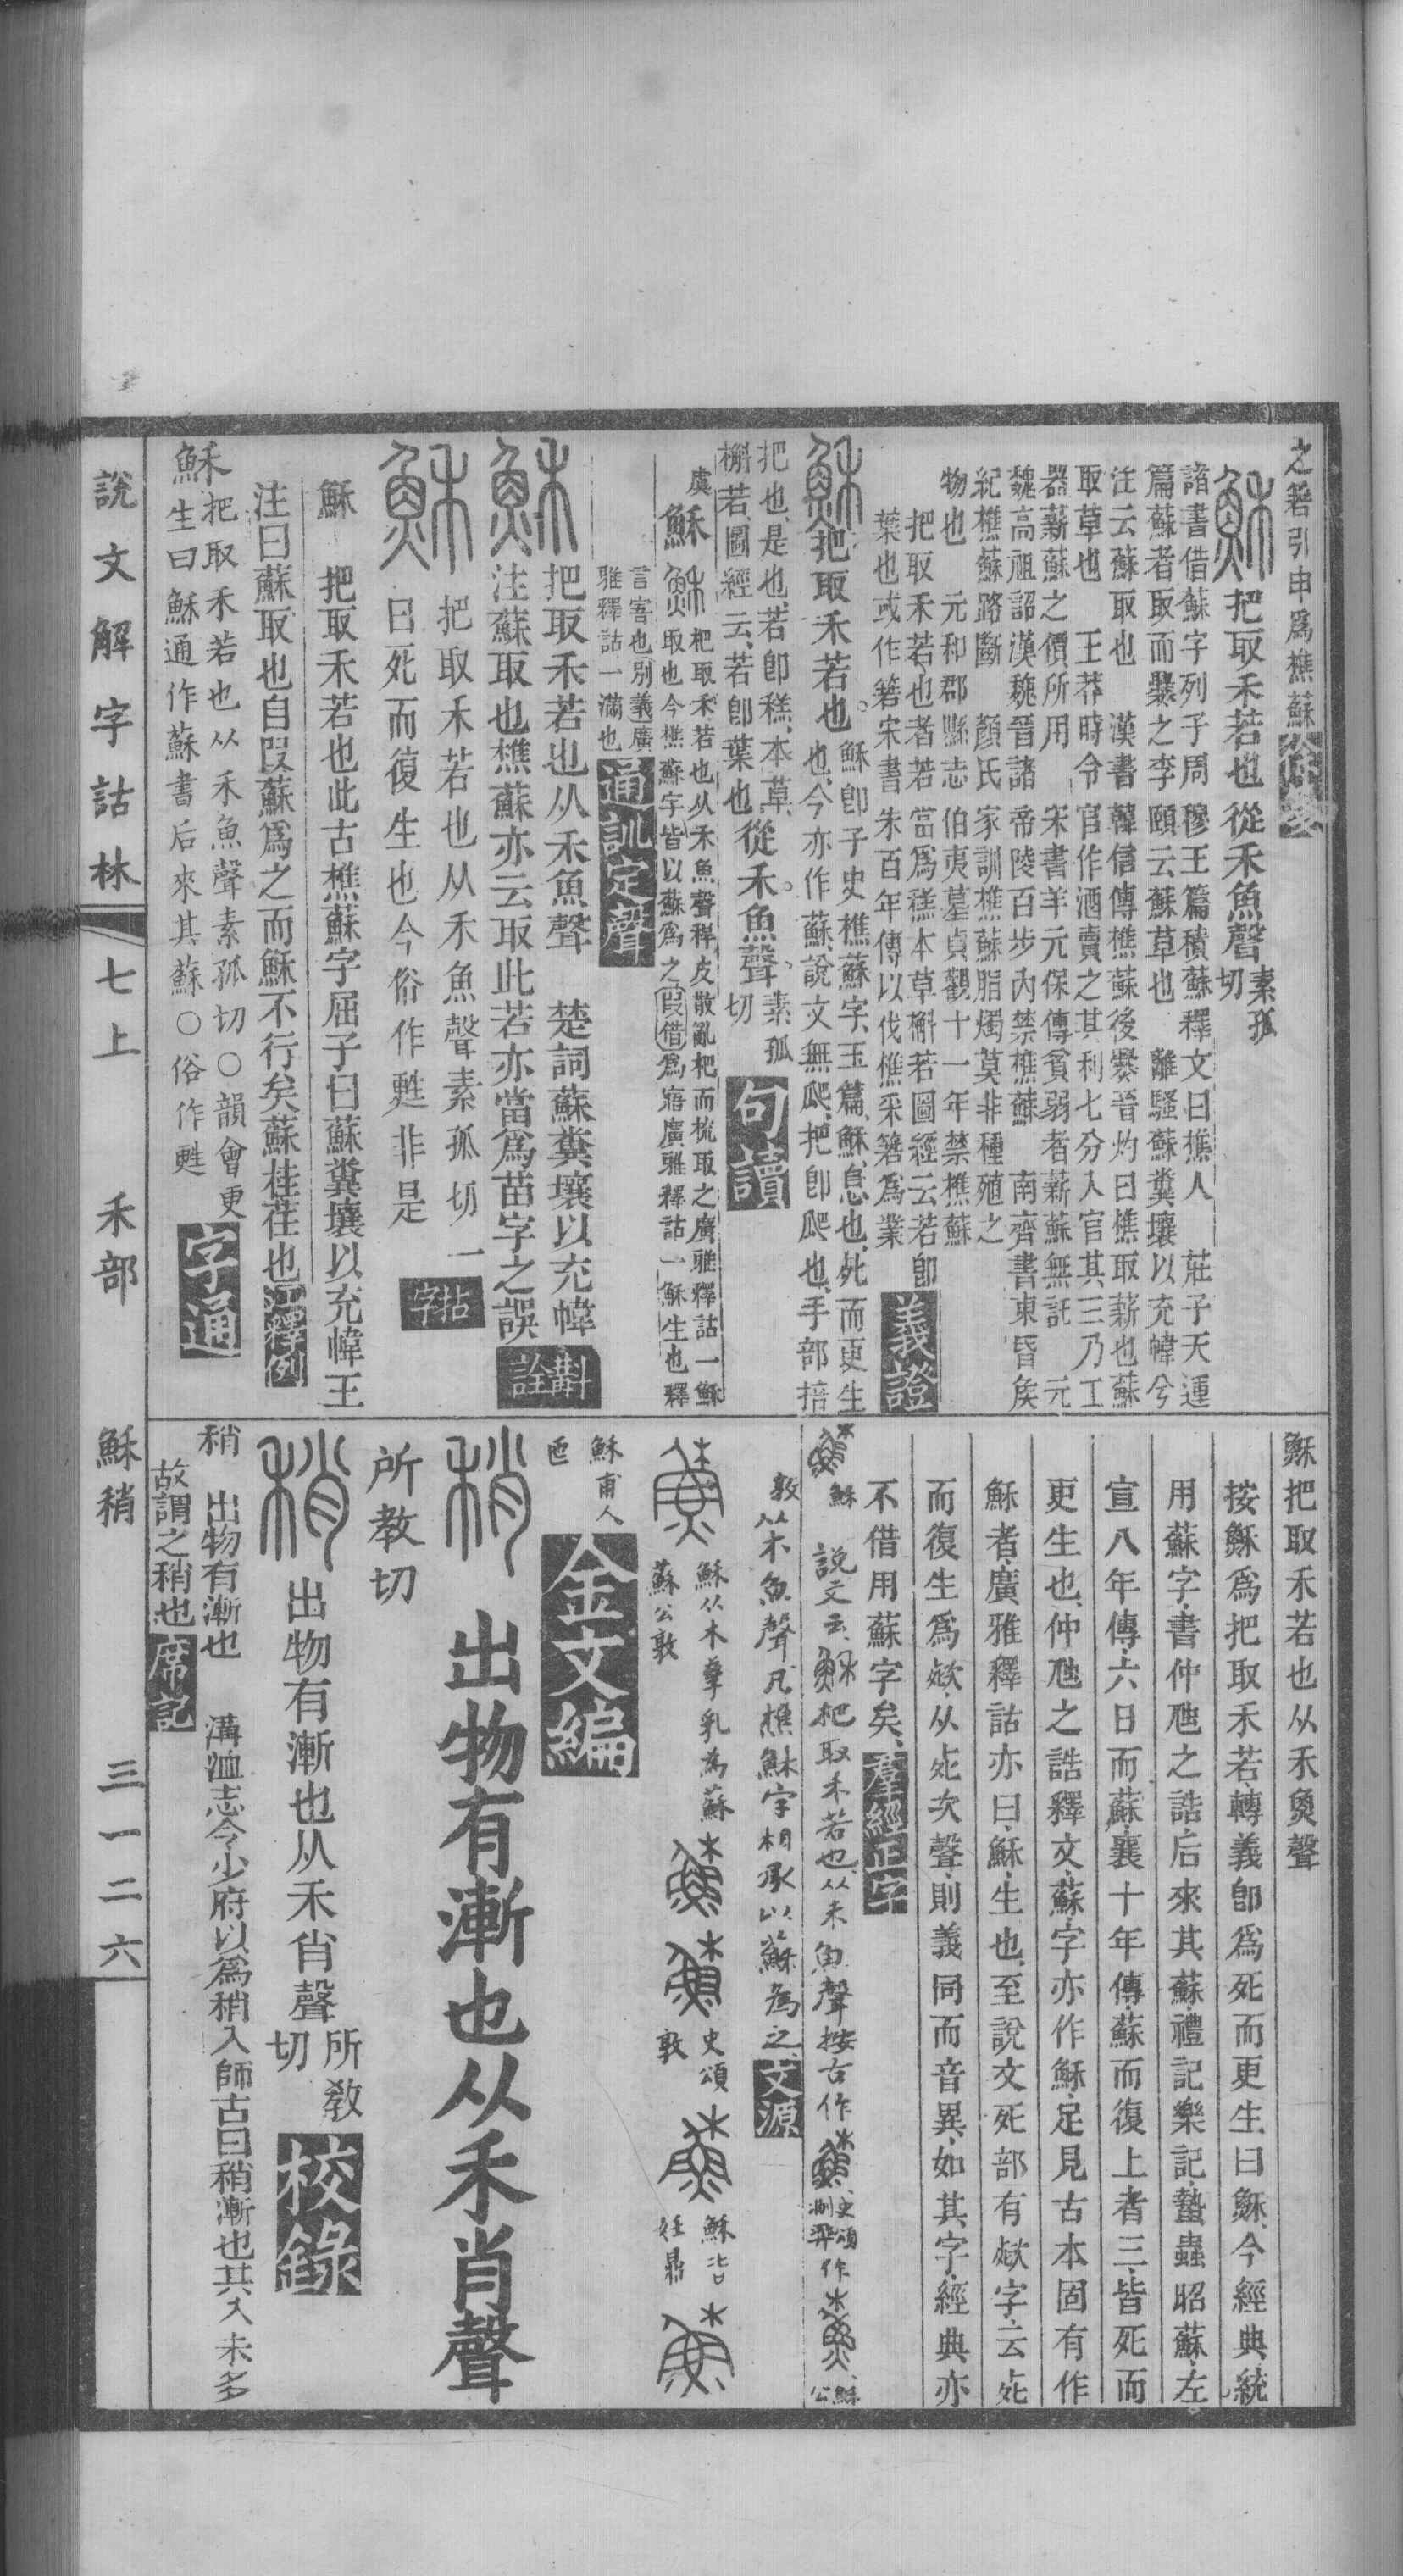 之箬引申爲樵蘇
穌把取禾若也從禾魚聲素孤切
諸書借蘇字列子周穆王篇積蘇釋文曰樵人 莊子天運
篇蘇者取而爨之李頤云蘇草也 離騷蘇糞壤以充幃兮
注云蘇取也 漢書韓信傳樵蘇後爨晉灼曰樵取薪也蘇
取草也 王莽時令官作酒賣之其利七分入官其三乃工
器薪蘇之價所用 宋書羊元保傳貧弱者薪蘇無託 元
魏高祖詔漢魏晉諸帝陵百步內禁樵蘇 南齊書東昏矦
紀樵蘇路斷 顏氏家訓樵蘇脂燭莫非種殖之
物也 元和郡縣志伯夷墓貞觀十一年禁樵蘇
把取禾若也者若當爲䅷本草槲若圖經云若卽
葉也或作箬宋書朱百年傳以伐樵采箬爲業
義證
穌把取禾若也穌卽子史樵蘇字玉篇穌息也死而更生
也今亦作蘇說文無爬把卽爬也手部掊
把也是也若卽䅷本草
槲若圖經云若卽葉也從禾魚聲素孤切
句讀
虞穌
穌杷取禾若也从禾魚聲稈皮散亂杷而梳取之廣雅釋詁一穌
取也今樵蘇字皆以蘇爲之叚借爲寤廣雅釋詁一穌生也釋
言寤也別義廣
雅釋詁一滿也
通訓定聲
穌把取禾若也从禾魚聲 楚詞蘇糞壤以充幃
注蘇取也樵蘇亦云取此若亦當爲苗字之誤
斠詮
穌把取禾若也从禾魚聲素孤切一
曰死而復生也今俗作甦非是
拈字
穌 把取禾若也此古樵蘇字屈子曰蘇糞壤以充幃王
注曰蘇取也自叚蘇爲之而穌不行矣蘇桂荏也
江釋例
穌把取禾若也从禾魚聲素孤切〇韻會更
生曰穌通作蘇書后來其蘇〇俗作甦
字通
穌把取禾若也从禾奐聲
按穌爲把取禾若轉義卽爲死而更生曰穌今經典統
用蘇字書仲虺之誥后來其蘇禮記樂記蟄蟲昭蘇左
宣八年傳六日而蘇襄十年傳蘇而復上者三皆死而
更生也仲虺之誥釋文蘇字亦作穌足見古本固有作
穌者廣雅釋詁亦曰穌生也至說文死部有㱔字云𣦸
而復生爲㱔从𣦸次聲則義同而音異如其字經典亦
不借用蘇字矣
羣經正字
穌
說文云穌杷取禾若也从禾魚聲按古作史頌作穌公
敦从木魚聲凡樵穌字相承以蘇爲之
文源
穌从木孳乳爲蘇
蘇公敦
史頌敦
穌𣅀妊鼎
穌甫人匜
金文編
稍 出物有漸也从禾肖聲
所教切
稍出物有漸也从禾肖聲所教切
校錄
稍 出物有漸也 溝洫志令少府以爲稍入師古曰稍漸也其入未多
故謂之稍也
席記
說文解字詁林 七上 禾部 穌稍 三一二六